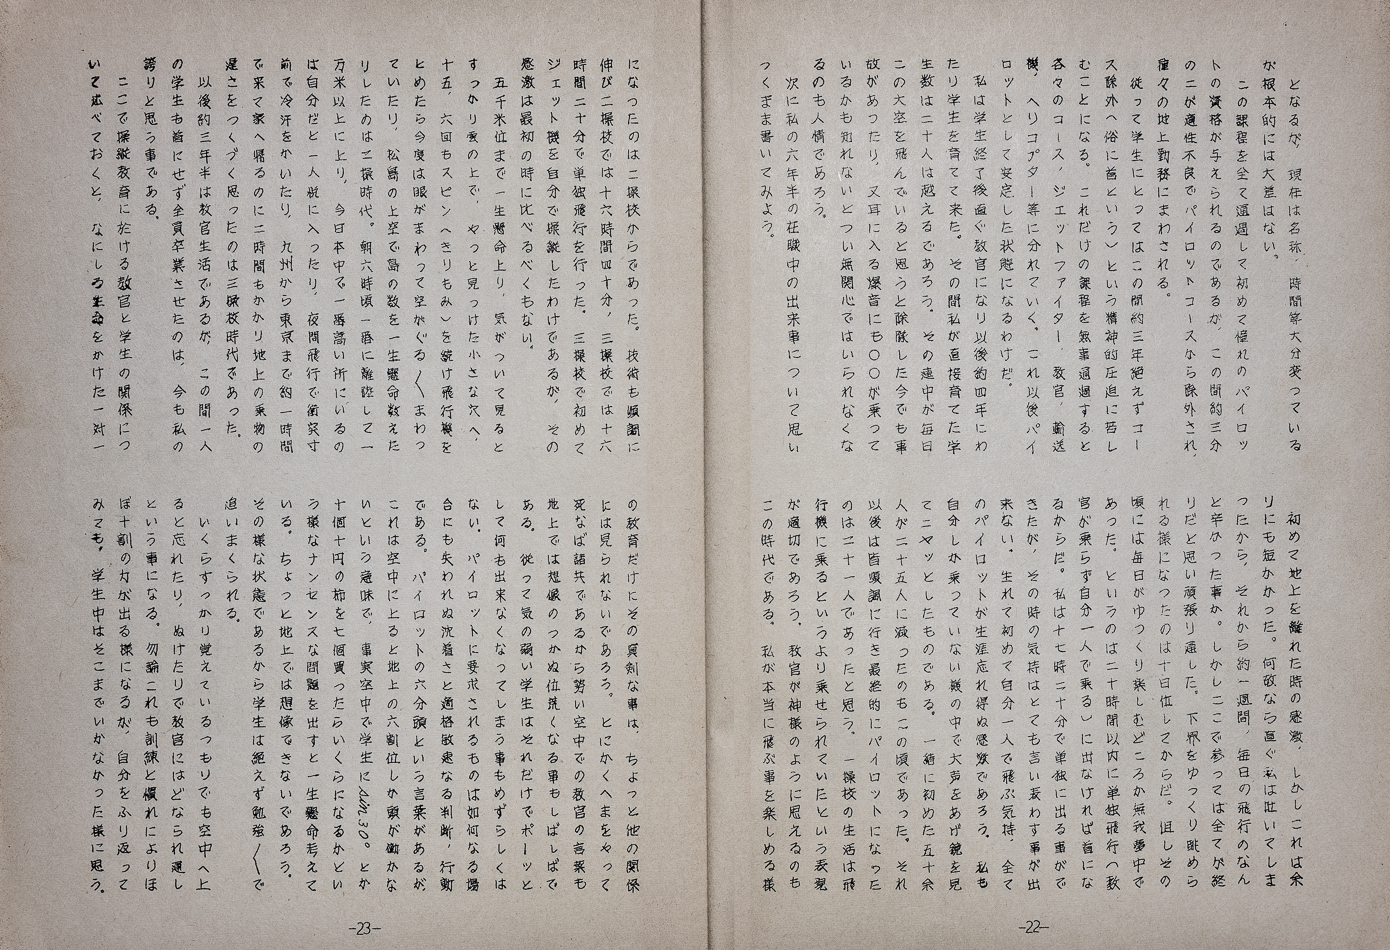 となるが、現在は名称、時間等大分変っている
が根本的には大差はない。
この課程を全て通過して初めて憧れのパイロッ
トの資格が与えられるのであるが、この間約三分
の二が適性不良でパイロットコースから除外され、
種々の地上勤務にまわされる。
従って学生にとってはこの間約三年絶えずコー
ス除外へ俗に首という)という精神的圧迫に苦し
むことになる。これだけの課程を無事通過すると
各々のコース、ジェットファイター、教官、輸送
機、ヘリコプター等に分れていく。これ以後パイ
ロットとして安定した状態になるわけだ。
私は学生終了後直ぐ教官になり以後約四年にわ
たり学生を育てて来た。その間私が直接育てた学
生数は二十人は越えるであろう。その連中が毎日
この大空を飛んでいると思うと除隊した今でも事
故があったり、又耳に入る爆音にも〇〇が乗って
いるかも知れないとつい無関心ではいられなくな
るのも人情であろう。
次に私の六年半の在職中の出来事について思い
つくまま書いてみよう。
初めて地上を離れた時の感激、しかしこれは余
りにも短かかった。何故なら直ぐ私は吐いてしま
ったから、それから約一週間、毎日の飛行のなん
と辛かった事か。しかしここで参っては全てが終
りだと思い頑張り通した。下界をゆっくり眺めら
れる様になったのは十日位してからだ。但しその
頃には毎日がゆっくり楽しむどころか無我夢中で
あった。というのは二十時間以内に単独飛行へ教
官が乗らず自分一人で乗る)に出なければ首にな
るからだ。私は十七時二十分で単独に出る事がで
きたが、その時の気持はとても言い表わす事が出
来ない。生れて初めて自分一人で飛ぶ気持、全て
のパイロットが生涯忘れ得ぬ感激であろう。私も
自分しか乗っていない機の中で大声をあげ鏡を見
てニヤッとしたものである。一緒に初めた五十余
人が二十五人に減ったのもこの頃であった。それ
以後は皆順調に行き最終的にパイロットになった
のは二十一人であったと思う。一操校の生活は飛
行機に乗るというより乗せられていたという表現
が適切であろう。教官が神様のように思えるのも
この時代である。私が本当に飛ぶ事を楽しめる様
-22-
になったのは二操校からであった。技術も順調に
伸び二操校では十六時間四十分、三操校では十六
時間二十分で単独飛行を行った。三操校で初めて
ジェット機を自分で操縦したわけであるが、その
感激は最初の時に比べるべくもない。
五千米位まで一生懸命上り、気がついて見ると
すっかり雲の上で、やっと見つけた小さな穴へ、
十五、六回もスピンへきりもみ)を続け飛行機を
とめたら今度は眼がまわって空がぐる〳〵まわっ
ていたり、松島の上空で島の数を一生懸命数えた
りしたのは二操時代。朝六時頃一番に離陸して一
万米以上に上り、今日本中で一番高い所にいるの
は自分だと一人悦に入ったり、夜間飛行で衝突寸
前で冷汗をかいたり、九州から東京まで約一時間
で来て家へ帰るのに二時間もかかり地上の乗物の
遅さをつくづく思ったのは三操校時代であった。
以後約三年半は教官生活であるが、この間一人
の学生も首にせず全員卒業させたのは、今も私の
誇りと思う事である。
ここで操縦教育に於ける教官と学生の関係につ
いて述べておくと、なにしろ生命をかけた一対一
の教育だけにその真剣な事は、ちょっと他の関係
には見られないであろう。とにかくへまをやって
死なば諸共であるから勢い空中での教官の言葉も
地上では想像のつかぬ位荒くなる事もしばしばで
ある。従って気の弱い学生はそれだけでボーッと
して何も出来なくなってしまう事もめずらしくは
ない。パイロットに要求されるものは如何なる場
合にも失われぬ沈着さと適格敏速なる判断、行動
である。パイロットの六分頭という言葉があるが
これは空中に上ると地上の六割位しか頭が働かな
いという意味で、事実空中で学生にsin30°とか
十個十円の柿を七個買ったらいくらになるかとい
う様なナンセンスな問題を出すと一生懸命考えて
いる。ちょっと地上では想像できないであろう。
その様な状態であるから学生は絶えず勉強〳〵で
追いまくられる。
いくらすっかり覚えているつもりでも空中へ上
ると忘れたり、ぬけたりで教官にはどなられ通し
という事になる。勿論これも訓練と慣れによりほ
ぼ十割の力が出る様になるが、自分をふり返って
みても、学生中はそこまでいかなかった様に思う。
-23-